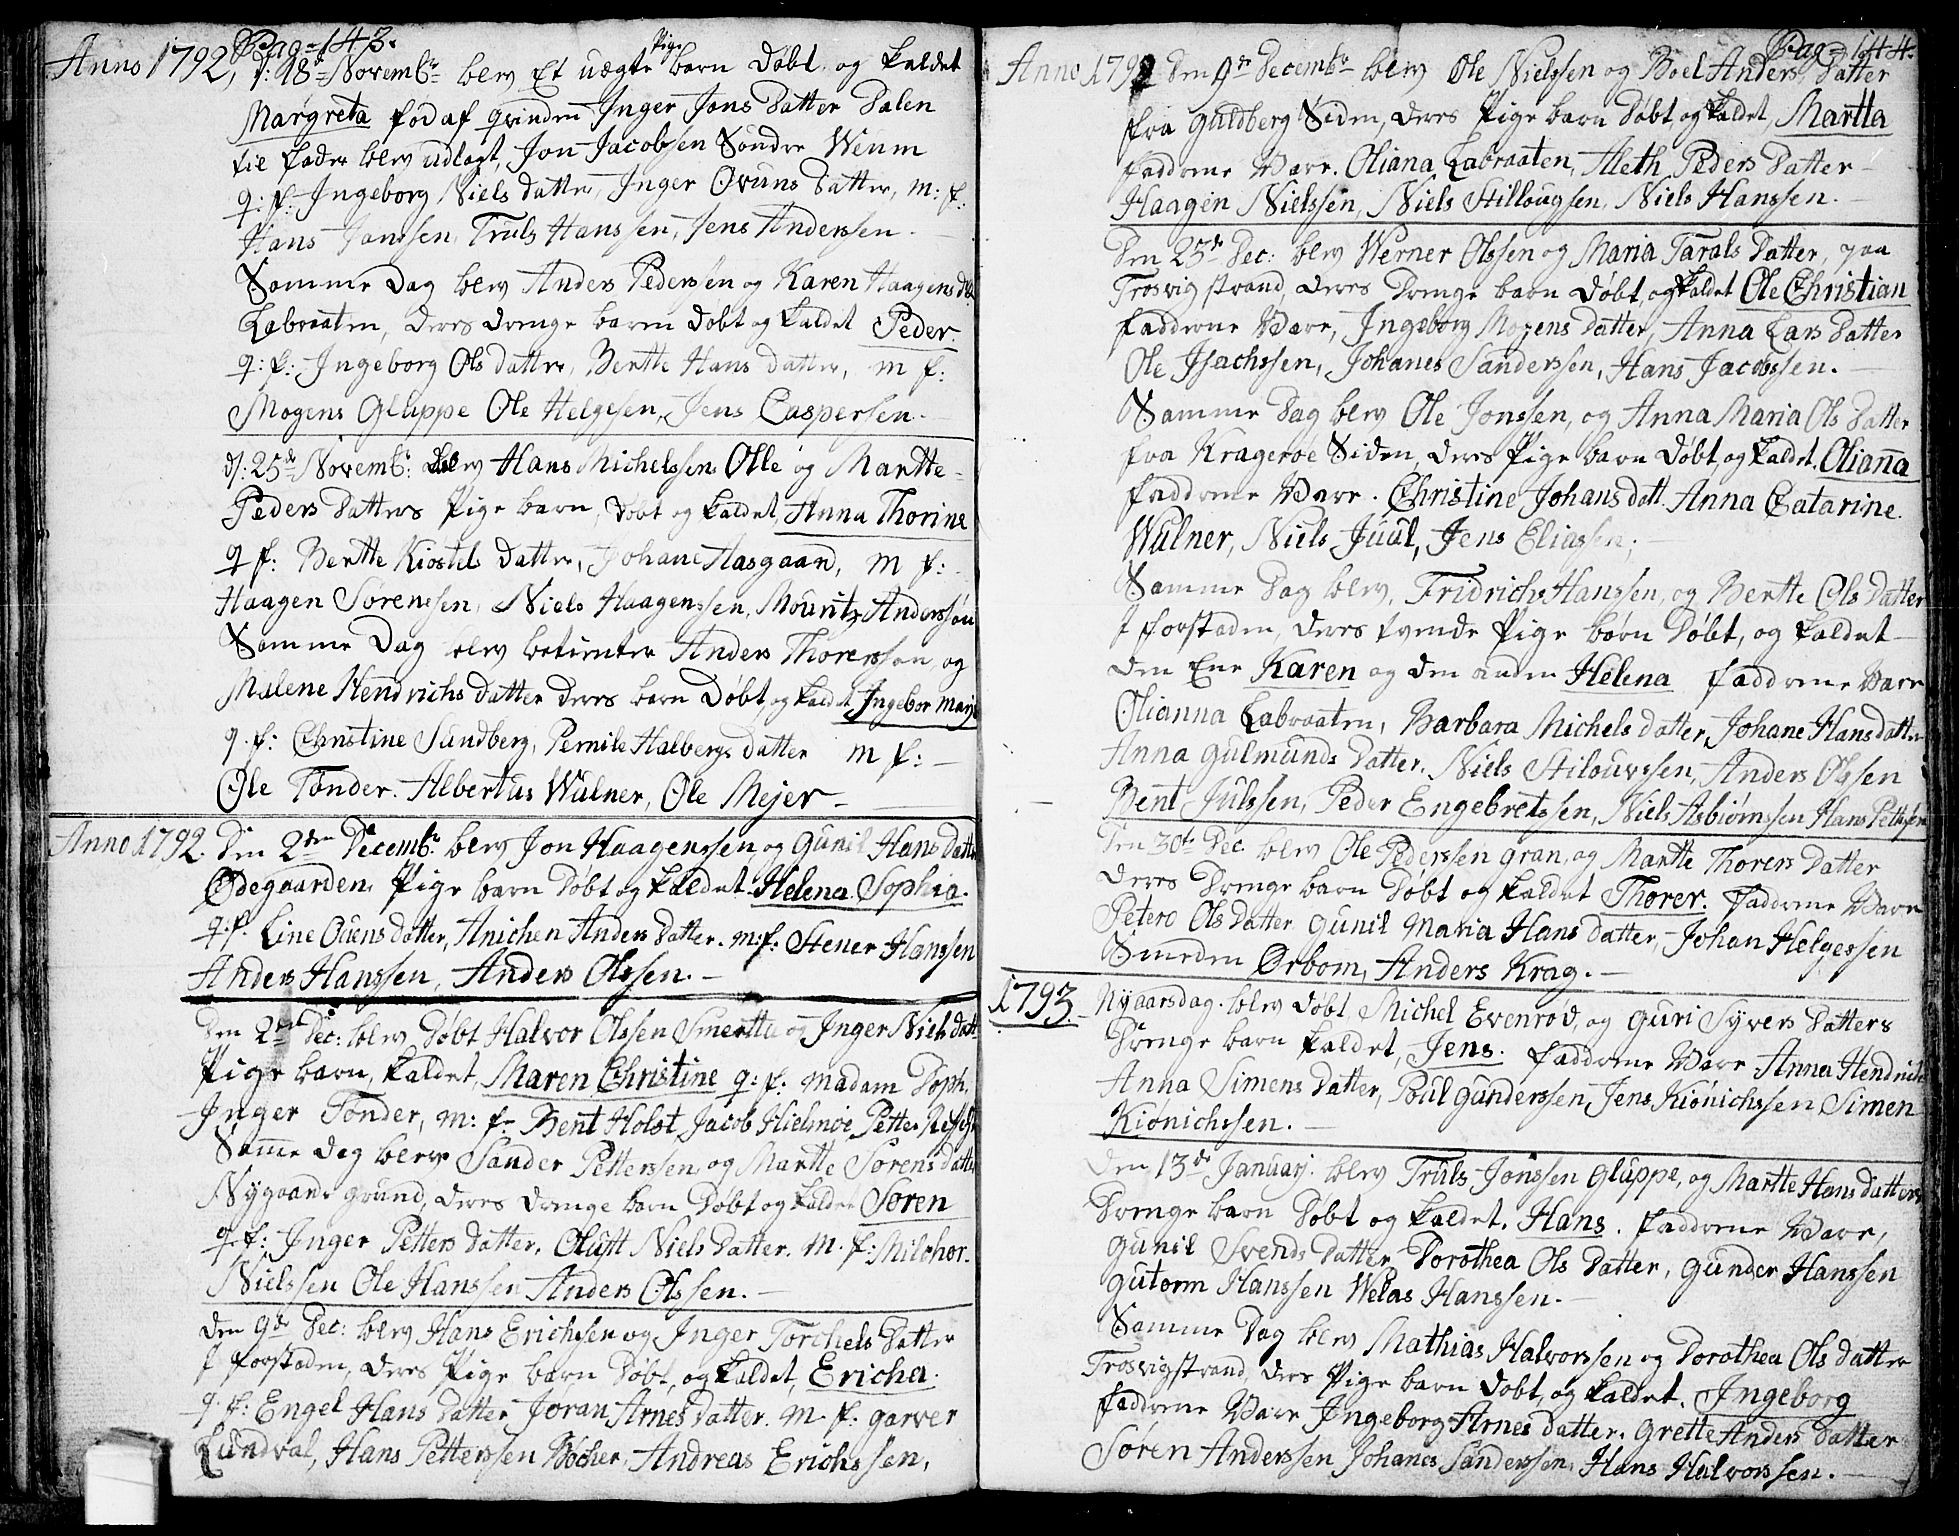 Pag=143.
Anno 1792, d: 18de Novembr blev Et uægte Pige barn Døbt og kaldet
Margreta fød af qvinden Inger Jons Datter Dalen
til fader blev udlagt, Jon Jacobsen Søndre Weum
q: f: Ingeborg Niels datter, Inger Ovuns Datter, m: f:
Hans Janssen, Truls Hanssen, Jens Anderssen.
Samme Dag blev Anders Pederssen og Karen Haagens dtr
Labraaten, deres drenge barn døbt og kaldet Peder.
q: f: Ingeborg Ols datter, Berthe Hans datter, m f:
Mogens Gluppe Ole Helgesen, Jens Caspersen.
d: 25de Novembr: blev Hans Michelssen Olle og Marthe
Peders Datters Pige barn, døbt og kaldet, Anna Thorine
q f: Berthe Kiostels datter, Johane Hasgaard, m f:
Haagen Sørenssen, Niels Haagenssen, Mouritz Anderssøn
Samme Dag blev betienter Anders Thorerssøn, og
Malene Hendrichs datter deres barn Døbt, og kaldet Ingebor Maria
q. f: Christine Sundberg, Pernile Halbergs datter m f:
Ole Tønder. Albertus Wulner, Ole Mejer
Anno 1792. Den 2den Decembr blev Jon Haagenssen, og Gunil Hans datter
Ødegaarden, Pige barn Døbt og kaldet Helena Sophia.
q. f. Line Ouens datter, Anichen Anders Datter. m: f: Stener Hanssen
Anders Hanssen, Anders Olssen.
Den 2den Dec: blev Døbt Halvor Olssen Smertta og Inger Niels datt
Pige barn, kaldet, Maren Christine q: f. Madam Doph.
Inger Tønder, m: f- Bent Holst Jacob Hielmøe Petter
Samme dag blev Sander Petterssen, og Marthe Sørens datter
Nygaards grund, deres drenge barn Døbt og kaldet Søren
q. f: Inger Petters datter, Olutt Niels Datter. m. f: Milchor.
Nielssen Ole Hanssen Anders Olssen.
Den 9de Dec: blev Hans Erichssen og Inger Torchels Datter
f forstaden, deres Pige barn Døbt, og kaldet, Ericha.
q. f: Engel Hans Datter, Joran Arnes datter. m. f. garver
Lundval, Hans Petterssen Bøcher, Andreas Erichssen,
Pag=144.
Anno 1792 Den 9de Decembr blev Ole Nielssen og Boel Anders Datter
fra Guldberg Siden, deres Pige barn Døbt, og kaldet, Martta
fadderne Vare. Oliana Labraaten, Aleth Peders Datter
Haagen Nielssen, Niels Stillougsen, Niels Hanssen.
Den 25de Dec: blev Werner Olssen og Maria Tarals Datter, paa
Trosvig strand, deres Drenge barn Døbt, og kaldet Ole Christian
fadderne Vare, Ingeborg Mogens datter, Anna Lars Datter
Ole Isachssen, Johanes Sanderssen, Hans Jacobssen.
Samme Dag blev Ole Jonssen, og Anna Maria Ols Datter
fra Kragerøe Siden, deres Pige barn Døbt, og kaldet, Olianna
fadderne Vare. Christine Johans dott. Anna Catarine
Wulner, Niels Juul, Jens Eliassen;
Samme Dag blev, Fridrich Hanssen, og Berthe Ols Datter
f forstaden, deres tvende Pige børn Døbt, og kaldet
den Ene Karen og den anden Helena fadderne Vare
Olianna Labraaten, Barbara Michels datter, Johane Hans datter
Anna Gulmunds Datter. Niels Stilouvssen, Anders Olssen
Bent Julssen, Peder Engebretssen, Niels Asbiørnssen Hans Petersen
Den 30te Dec blev Ole Pederssen Gran, og Marthe Thorers Datter
deres Drenge barn Døbt og kaldet Thorer. fadderne Vare
Petero Ols Datter Gunil Maria Hans datter, Johan Helgessen
Smeden Ørbom, Anders Krag.
1793. Nyaarsdag. blev døbt Michel Evenrød, og Guri Syvers Datters
Drenge barn kaldet, Jens. fadderne Vare Anna Hendrichs
Anna Simens Datter, Poul Gunderssen, Jens Kiønichssen Simen
Kiønichssen.
Den 13de Januarj. blev Truls Jonssen Gluppe, og Marthe Hans Datters
Drenge barn Døbt og kaldet. Hans. fadderne Vare,
Gunil Svends Datter, Dorothea Ols Datter, Gunder Hanssen
Gutorm Hanssen Welas Hanssen.
Samme Dag blev Mathias Halvorssen og Dorothea Ols datter
Trosvigstrand, deres Pige barn døbt, og kaldet. Ingeborg
fadderne Vare Ingeborg Arnes Datter. Grette Anders Datter
Søren Anderssen Johanes Sanderssen, Hans Halvorssen.